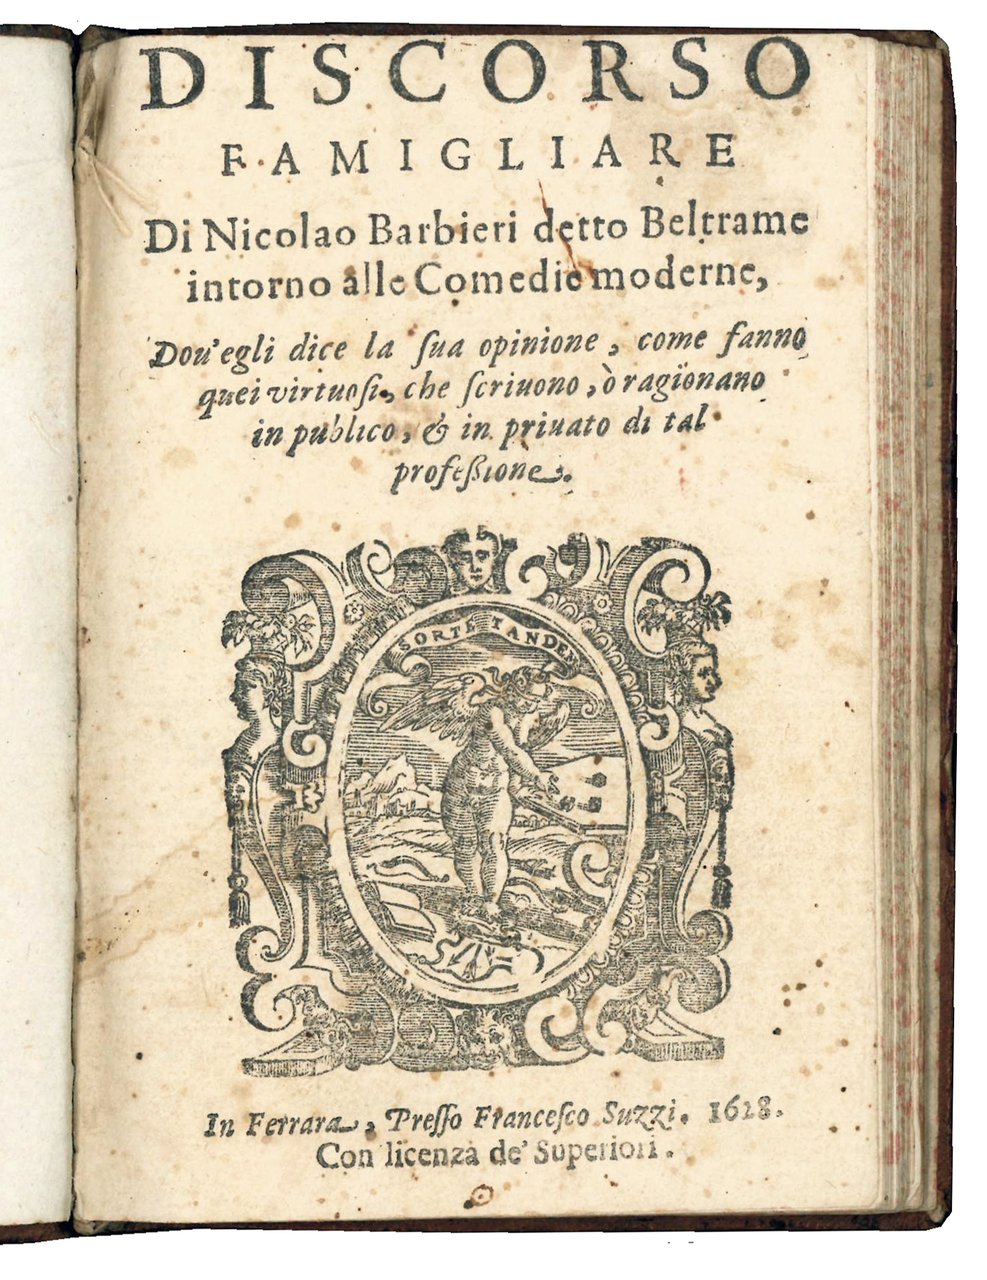 DISCORSO
FAMIGLIARE
Di Nicolao Barbieri detto Beltrame
intorno alle Comedie moderne,
Dou'egli dice la ſua opinione, come fanno
quei virtuoſi, che ſcriuono, ò ragionano
in publico, & in priuato di tal
profeßione.
SORTE TANDEM
In Ferrara, Preſſo Franceſco Suzzi. 1628.
Con licenza de' Superiori.